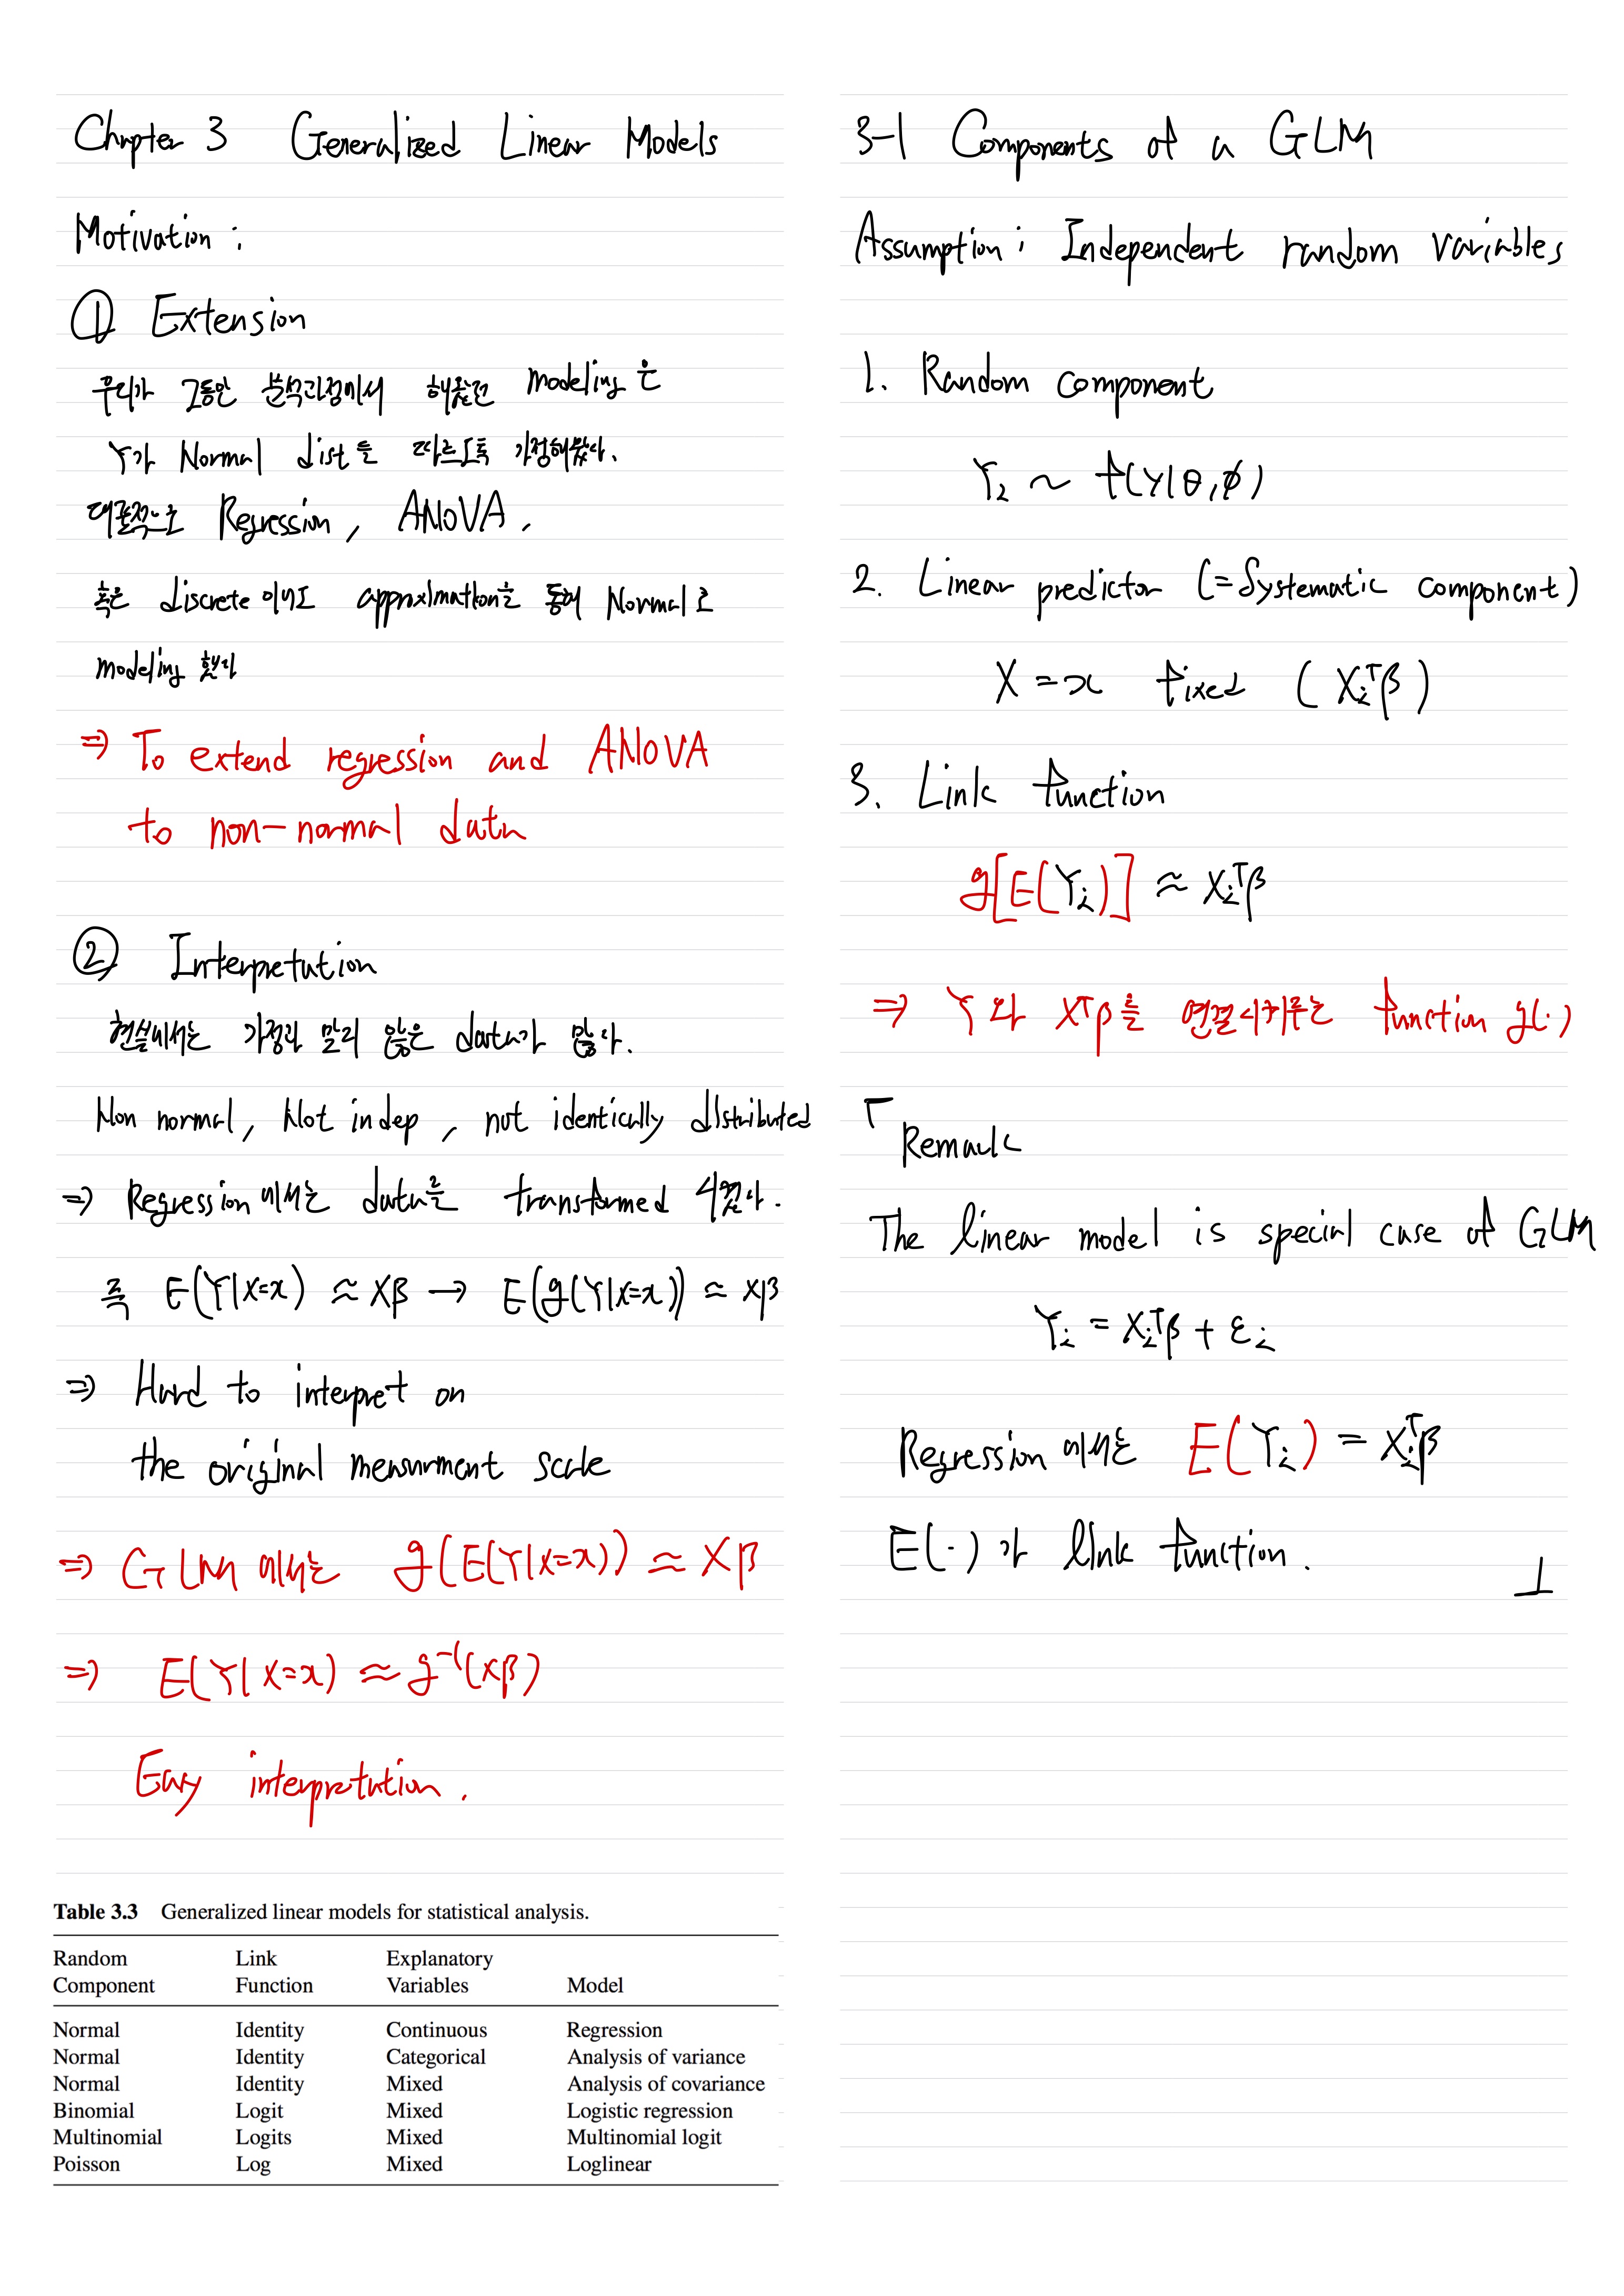 Chapter 3 Generalized Linear Models
Motivation :
① Extension
우리가 그동안 분석과정에서 해왔던 modeling 은
Y가 Normal dist 를 따르도록 가정해왔다.
대표적으로 Regression, ANOVA.
혹은 discrete 이어도 approximation을 통해 Normal 로
modeling 했다
⇒ To extend regression and ANOVA
to non-normal data
② Interpretation
현실에서는 가정과 맞지 않은 data가 많다.
Non normal, Not indep, not identically distributed
⇒ Regression 에서는 data를 transformed 시켰다.
즉 E(Y|X=x) ≈ Xβ → E(g(Y|X=x)) ≈ Xβ
⇒ Hard to interpret on
the original measurment scale
⇒ GLM 에서는 g(E(Y|X=x)) ≈ Xβ
⇒ E(Y|X=x) ≈ g⁻¹(Xβ)
Easy interpretation.
Table 3.3 Generalized linear models for statistical analysis.
Random Link Explanatory
Component Function Variables Model
Normal Identity Continuous Regression
Normal Identity Categorical Analysis of variance
Normal Identity Mixed Analysis of covariance
Binomial Logit Mixed Logistic regression
Multinomial Logits Mixed Multinomial logit
Poisson Log Mixed Loglinear
3-1 Components of a GLM
Assumption : Independent random variables
1. Random component
Yᵢ ~ f(y|θ,ϕ)
2. Linear predictor (=Systematic component)
X = x fixed (Xᵢᵀβ)
3. Link function
g[E(Yᵢ)] ≈ Xᵢᵀβ
⇒ Y 와 Xᵀβ를 연결시켜주는 function g(·)
Remark
The linear model is special case of GLM
Yᵢ = Xᵢᵀβ + εᵢ
Regression 에서는 E(Yᵢ) = Xᵢᵀβ
E(·) 가 link function.